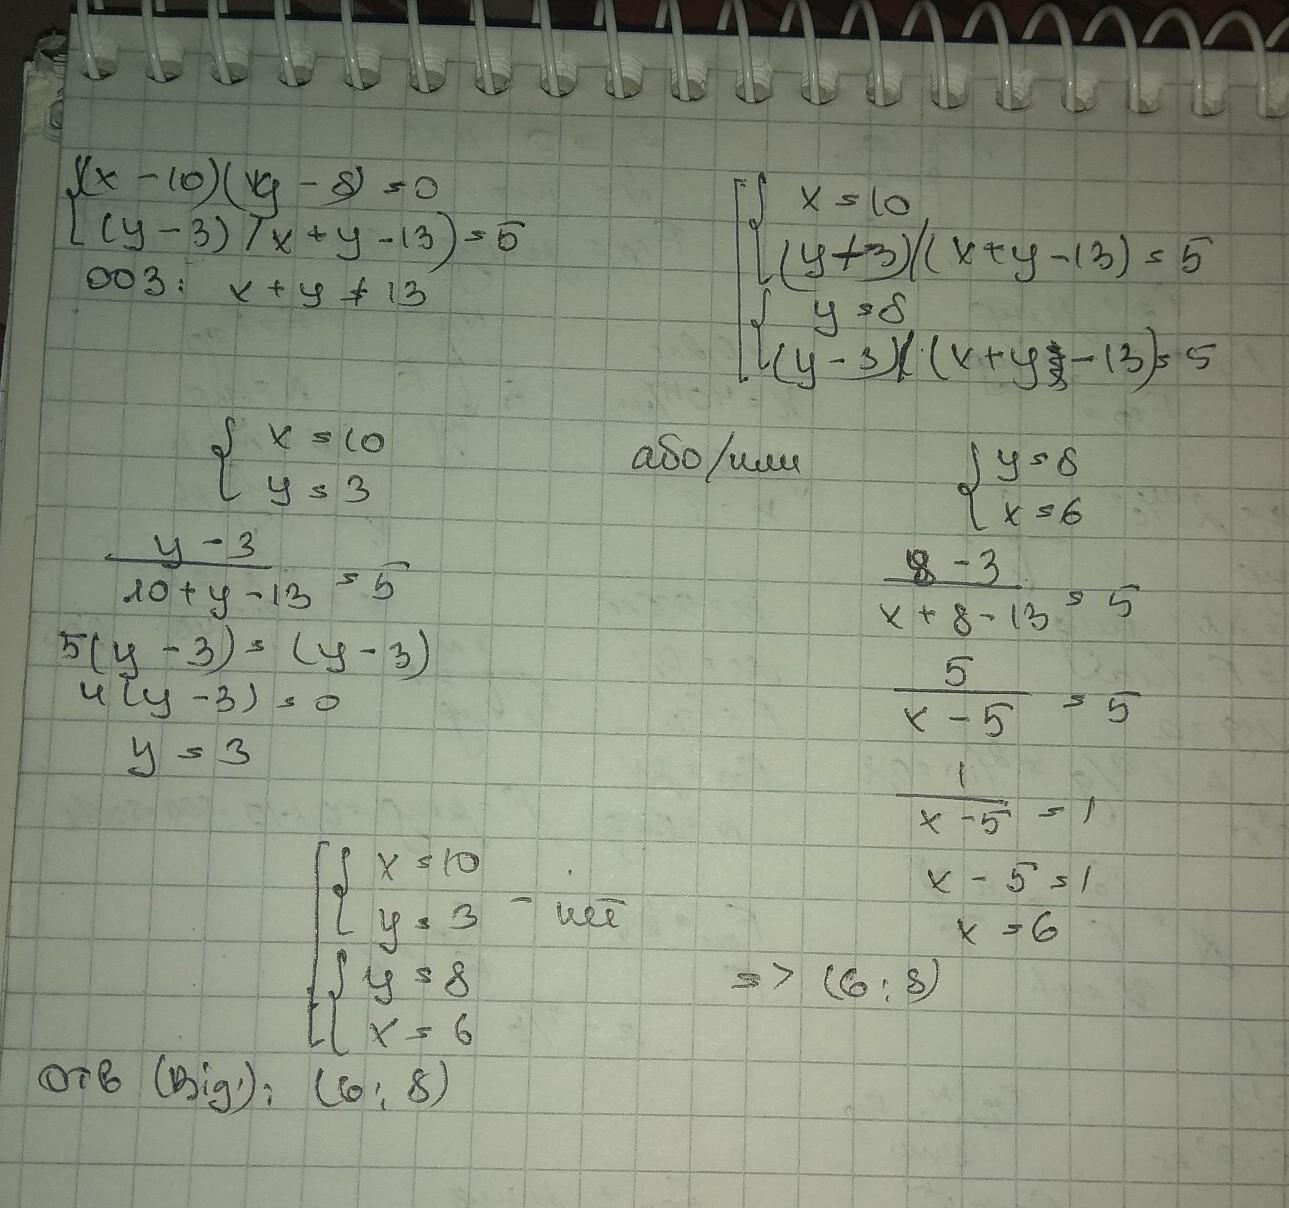 (x - 10)(y - 8) = 0
(y - 3) / (x + y - 13) = 5
ООЗ: x + y ≠ 13
x = 10
(y + 3) / (x + y - 13) = 5
y = 8
(y - 3) / (x + y - 13) = 5
x = 10
y = 3
або/или
y = 8
x = 6
y - 3
10 + y - 13 = 5
5(y - 3) = (y - 3)
4(y - 3) = 0
y = 3
8 - 3
x + 8 - 13 = 5
5
x - 5 = 5
1
x - 5 = 1
x - 5 = 1
x = 6
x = 10
y = 3 - нет
y = 8
x = 6
=> (6; 8)
Отв (Від): (6; 8)